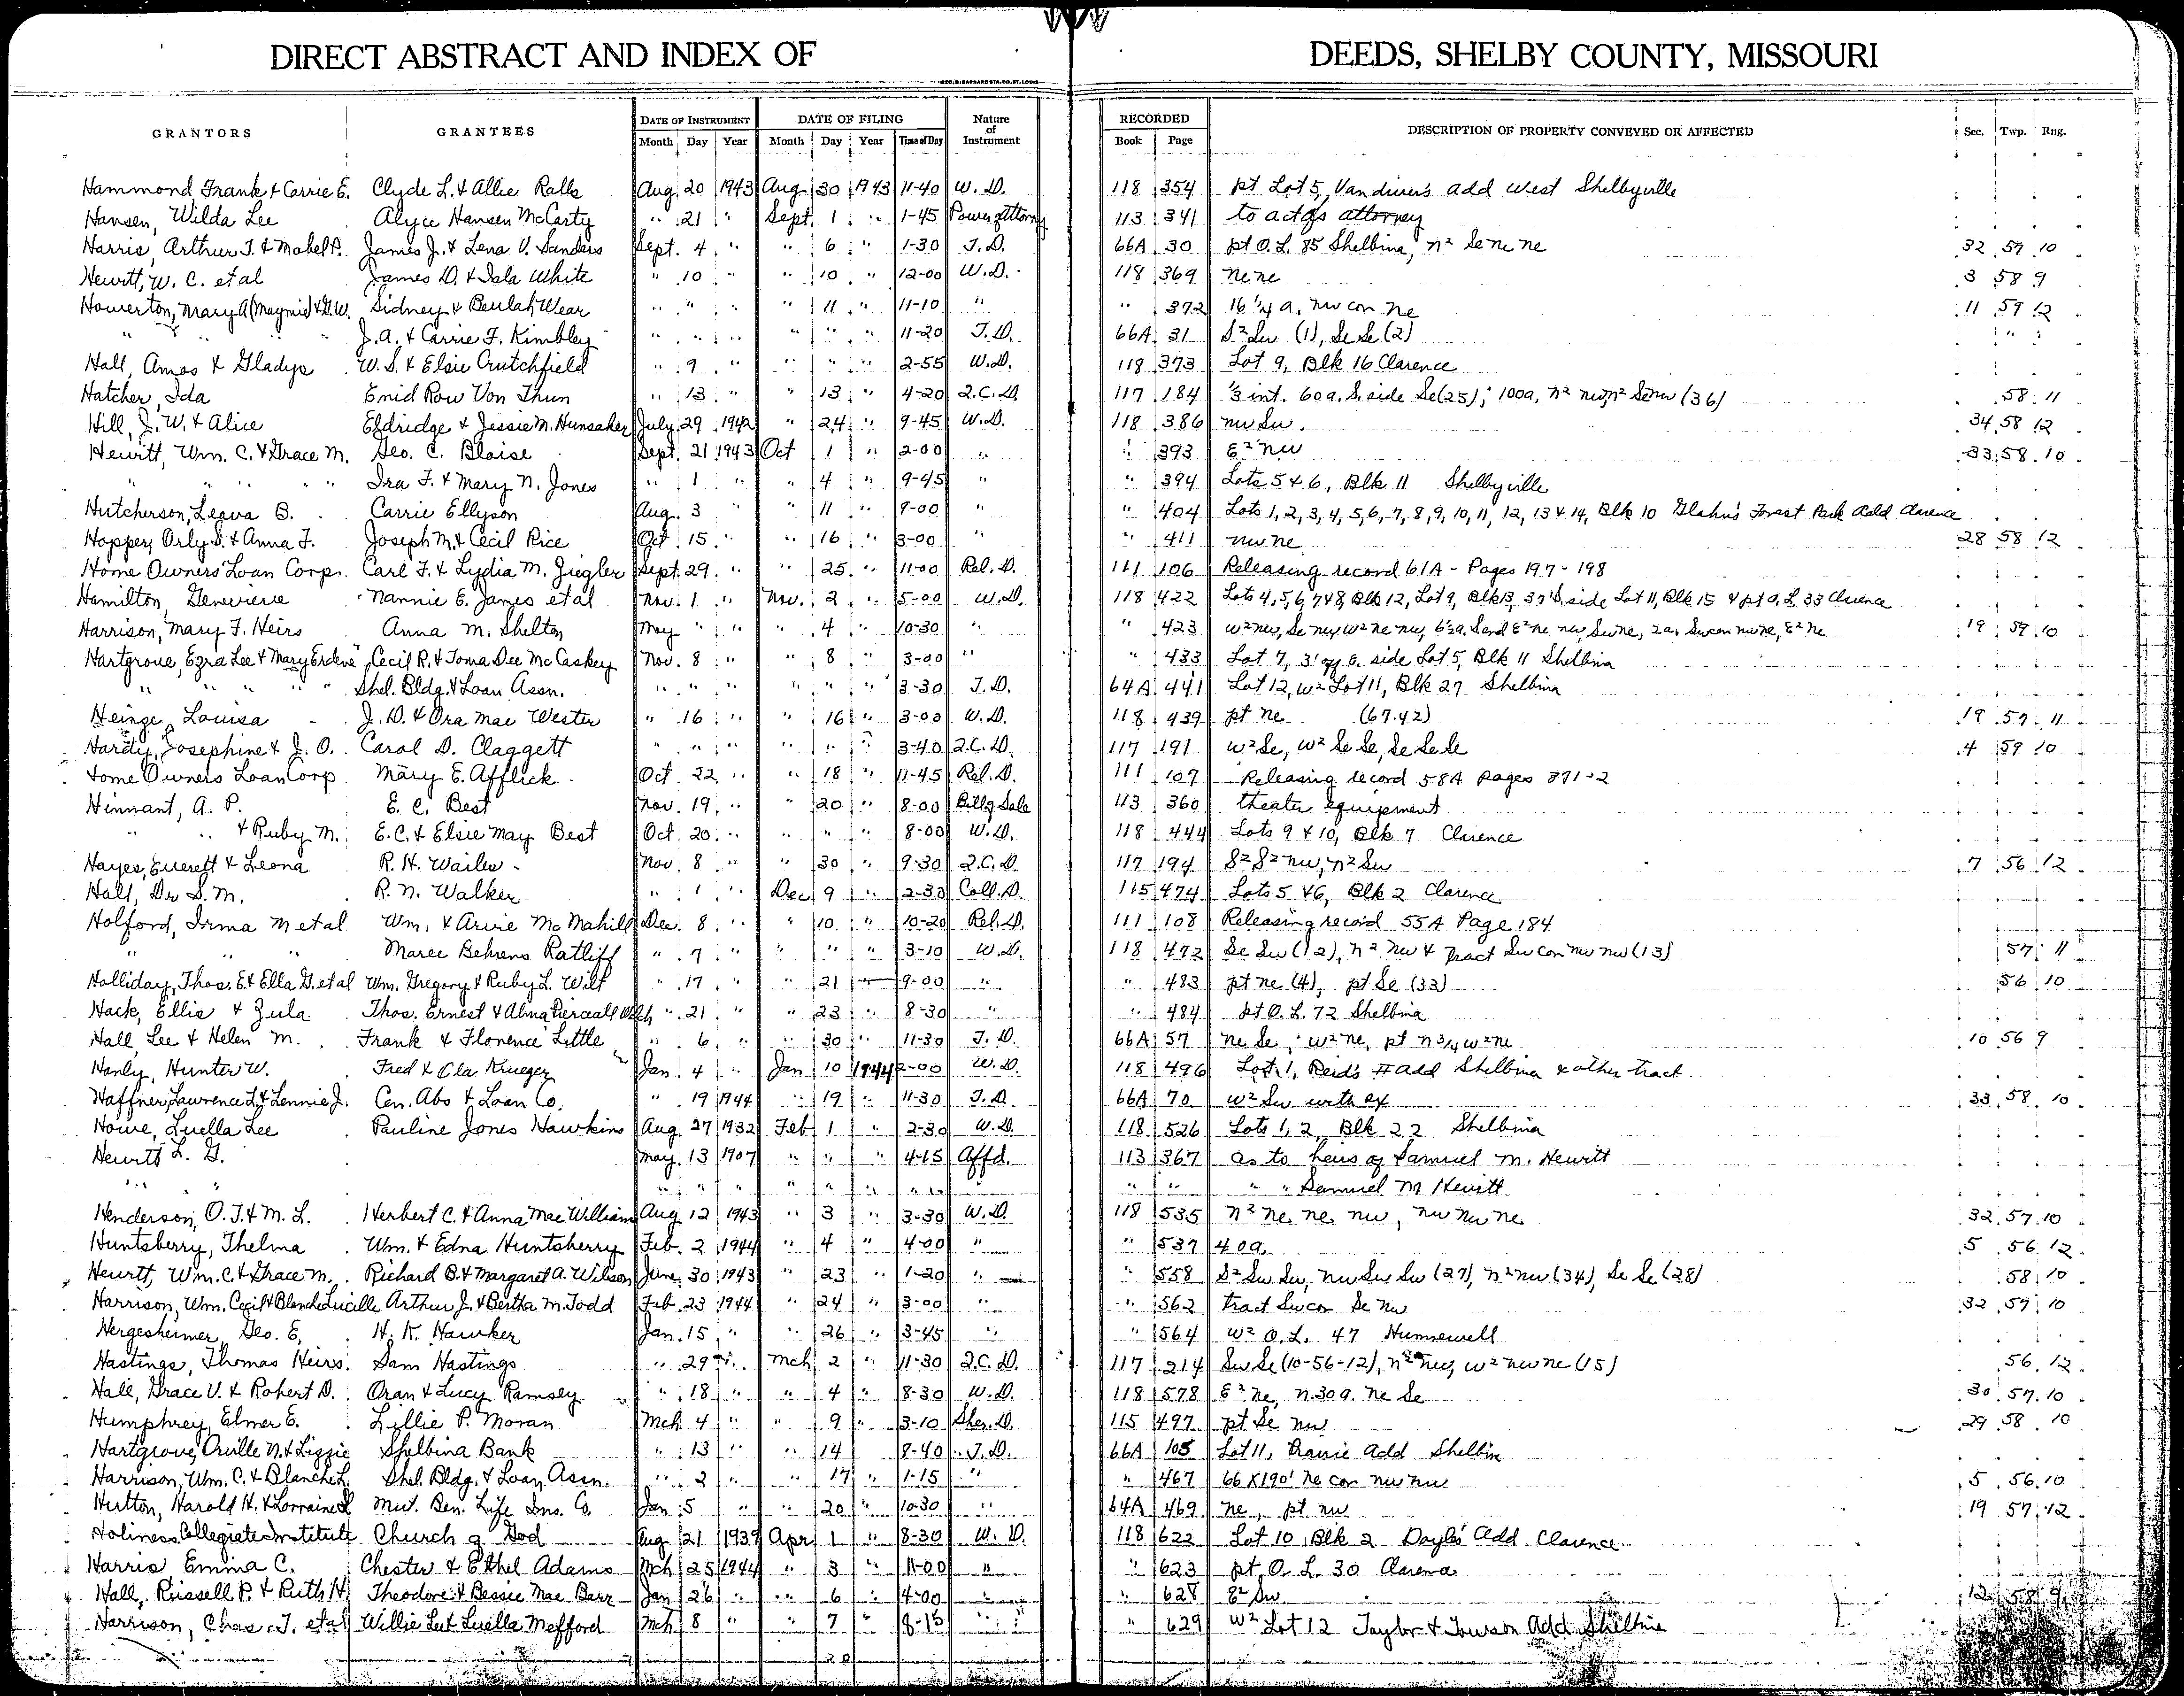 DIRECT ABSTRACT AND INDEX OF DEEDS, SHELBY COUNTY, MISSOURI
GEO. D. BARNARD STA. CO. ST. LOUIS
GRANTORS GRANTEES DATE OF INSTRUMENT DATE OF FILING Nature of Instrument RECORDED DESCRIPTION OF PROPERTY CONVEYED OR AFFECTED Sec. Twp. Rng.
Month Day Year Month Day Year Time of Day Book Page
Hammond Frank & Carrie E. Clyde L. & Allie Ralls Aug. 20 1943 Aug 30 1943 11-40 W. D. 118 354 pt Lot 5, Vandiver's add West Shelbyville
Hansen, Wilda Lee Alyce Hansen McCarty " 21 " Sept. 1 " 1-45 Power of Attorney 113 341 to act as attorney
Harris, Arthur T. & Mabel P. James J. & Lena V. Sanders Sept. 4 " " 6 " 1-30 T. D. 66A 30 pt O. L. 85 Shelbina, N² Se Ne Ne 32 59 10
Hewitt, W. C. et al James D. & Isla White " 10 " " 10 " 12-00 W. D. 118 369 Ne Ne 3 58 9
Howerton, Mary A (Maymie) & G.W. Sidney & Beulah Wear " " " " 11 " 11-10 " " 372 16 1/4 a. Nw cor Ne 11 59 12
" " J. A. & Carrie F. Kimbley " " " " " " 11-20 T. D. 66A 31 S² Sw (1), Se Se (2) " "
Hall, Amos & Gladys W. S. & Elsie Crutchfield " 9 " " " " 2-55 W. D. 118 373 Lot 9, Blk 16 Clarence
Hatcher, Ida Enid Row Von Thun " 13 " " 13 " 4-20 Q. C. D. 117 184 1/3 int. 60a. S. side Se (25); 100a, N² Nw, N² Se Nw (36) 58 11
Hill, J. W. & Alice Eldridge & Jessie M. Hunsaker July 29 1942 " 24 " 9-45 W. D. 118 386 Nw Sw 34 58 12
Hewitt, Wm. C. & Grace M. Geo. C. Blaise Sept. 21 1943 Oct 1 " 2-00 " " 393 E² Nw 33 58 10
" " " " Ira F. & Mary N. Jones " 1 " " 4 " 9-45 " " 394 Lots 5 & 6, Blk 11 Shelbyville
Hutcherson, Leava B. Carrie Ellyson Aug. 3 " 11 " 9-00 " " 404 Lots 1, 2, 3, 4, 5, 6, 7, 8, 9, 10, 11, 12, 13 & 14, Blk 10 Glahn's Forest Park Add Clarence
Hopper, Orly S. & Anna F. Joseph M. & Cecil Rice Oct. 15 " " 16 " 3-00 " " 411 Nw Ne 28 58 12
Home Owners' Loan Corp. Carl F. & Lydia M. Ziegler Sept. 29 " " 25 " 11-00 Rel. D. 111 106 Releasing record 61A - Pages 197 - 198
Hamilton, Genevieve Nannie E. James et al Nov. 1 " Nov. 2 " 5-00 W. D. 118 422 Lots 4, 5, 6, 7 & 8, Blk 12, Lot 9, Blk 13, side Lot 11, Blk 15 & pt O. L. 33 Clarence
Harrison, Mary F. Heirs Anna M. Shelton May " " " 4 " 10-30 " " 423 W² Nw, Se Nw, W² Ne Nw, 6½a. S end E² Ne Nw, Sw Ne, 2a. Sw cor Nw Ne, E² Ne 19 59 10
Hartgrove, Ezra Lee & Mary Erdene Cecil R. & Toma Dee McCaskey Nov. 8 " " 8 " 3-00 " " 433 Lot 7, 3' of E. side Lot 5, Blk 11 Shelbina
" " " " Shel. Bldg. & Loan Assn. " " " " " " 3-30 T. D. 64A 441 Lot 12, W² Lot 11, Blk 27 Shelbina
Heinge, Louisa J. D. & Ora Mae Wester " 16 " " 16 " 3-00 W. D. 118 439 pt Ne (67.42) 19 57 11
Hardy, Josephine & J. O. Carol D. Claggett " " " " " " 3-40 Q. C. D. 117 191 W² Se, W² Se Se, Se Se Se 4 59 10
Home Owners Loan Corp. Mary E. Afflick Oct. 22 " " 18 " 11-45 Rel. D. 111 107 Releasing record 58A pages 871-2
Hinnant, A. P. E. C. Best Nov. 19 " " 20 " 8-00 Bill of Sale 113 360 theater equipment
" " & Ruby M. E. C. & Elsie May Best Oct. 20 " " " " 8-00 W. D. 118 444 Lots 9 & 10, Blk 7 Clarence
Hayes, Everett & Leona R. H. Wailes Nov. 8 " " 30 " 9-30 Q. C. D. 117 194 S² S² Nw, N² Sw 7 56 12
Hall, Dr. S. M. R. N. Walker " 1 " Dec 9 " 2-30 Coll. D. 115 474 Lots 5 & 6, Blk 2 Clarence
Holford, Irma M et al Wm. & Arvie McMahill Dec. 8 " " 10 " 10-20 Rel. D. 111 108 Releasing record 55A Page 184
" " " Maree Behrens Ratliff " 7 " " " " 3-10 W. D. 118 472 Se Sw (12), N² Nw & Tract Sw cor Nw Nw (13) 57 11
Holliday, Thos. E. & Ella G. et al Wm. Gregory & Ruby L. Wilt " 17 " " 21 9-00 " " 483 pt Ne (4), pt Se (33) 56 10
Hack, Ellis & Zula Thos. Ernest & Alma Pierceall " 21 " " 23 " 8-30 " " 484 pt O. L. 72 Shelbina
Hall, Lee & Helen M. Frank & Florence Little " 6 " " 30 " 11-30 T. D. 66A 57 Ne Se, W² Ne, pt N 3/4 W² Ne 10 56 9
Hanly, Hunter W. Fred & Ola Krueger Jan. 4 " Jan 10 1944 2-00 W. D. 118 496 Lot 1, Reid's II Add Shelbina & other tract
Haffner, Lawrence L. & Lennie J. Cen. Abs & Loan Co. " 19 1944 " 19 " 11-30 T. D. 66A 70 W² Sw with ex 33 58 10
Howe, Luella Lee Pauline Jones Hawkins Aug. 27 1932 Feb 1 " 2-30 W. D. 118 526 Lots 1, 2, Blk 22 Shelbina
Hewitt L. G. May 13 1907 " " " 4-15 Affd. 113 367 as to heirs of Samuel M. Hewitt
" " " " " " " " " " " " " Samuel M Hewitt
Henderson, O. T. & M. L. Herbert C. & Anna Mae William Aug 12 1943 " 3 " 3-30 W. D. 118 535 N² Ne Ne Nw, Nw Nw Ne 32 57 10
Huntsberry, Thelma Wm. & Edna Huntsberry Feb. 2 1944 " 4 " 4-00 " " 537 40a. 5 56 12
Hewitt, Wm. C. & Grace M. Richard B. & Margaret A. Wilson June 30 1943 " 23 " 1-20 " " 558 S² Sw Sw, Nw Sw Sw (27), N² Nw (34), Se Se (28) 58 10
Harrison, Wm. Cecil & Blanche Lucille Arthur J. & Bertha M. Todd Feb. 23 1944 " 24 " 3-00 " " 562 tract Sw cor Se Nw 32 57 10
Hergesheimer, Geo. E. H. K. Hawker Jan. 15 " " 26 " 3-45 " " 564 W² O. L. 47 Hunnewell
Hastings, Thomas Heirs. Sam Hastings " 29 " Mch 2 " 11-30 Q. C. D. 117 214 Sw Se (10-56-12), N² Nw, W² Nw Ne (15) 56 12
Hale, Grace V. & Robert D. Oran & Lucy Ramsey " 18 " " 4 " 8-30 W. D. 118 578 E² Ne, N. 30a. Ne Se 30 57 10
Humphrey, Elmer E. Lillie P. Moran Mch 4 " " 9 " 3-10 Sher. D. 115 497 pt Se Nw 29 58 10
Hartgrove, Orville N. & Lizzie Shelbina Bank " 13 " " 14 8-40 T. D. 66A 105 Lot 11, Prairie Add Shelbina
Harrison, Wm. C. & Blanche L. Shel. Bldg. & Loan Assn. " 2 " " 17 " 1-15 " " 467 66 X 190' Ne cor Nw Nw 5 56 10
Hutton, Harold H. & Lorraine Mut. Ben. Life Ins. Co. Jan 5 " " 20 " 10-30 " 64A 469 Ne, pt Nw 19 57 12
Holiness Collegiate Institute Church of God Aug 21 1939 Apr 1 " 8-30 W. D. 118 622 Lot 10 Blk 2 Doyle's Add Clarence
Harris Emma C. Chester & Ethel Adams Mch 25 1944 " 3 " 11-00 " " 623 pt O. L. 30 Clarence
Hall, Russell P. & Ruth H. Theodore & Bessie Mae Barr Jan 26 " " 6 " 4-00 " " 628 E² Sw 12 58 9
Harrison, Chas. T. et al Willie Lee & Luella Mefford Mch 8 " " 7 " 8-15 " " 629 W² Lot 12 Taylor & Towson Add Shelbina